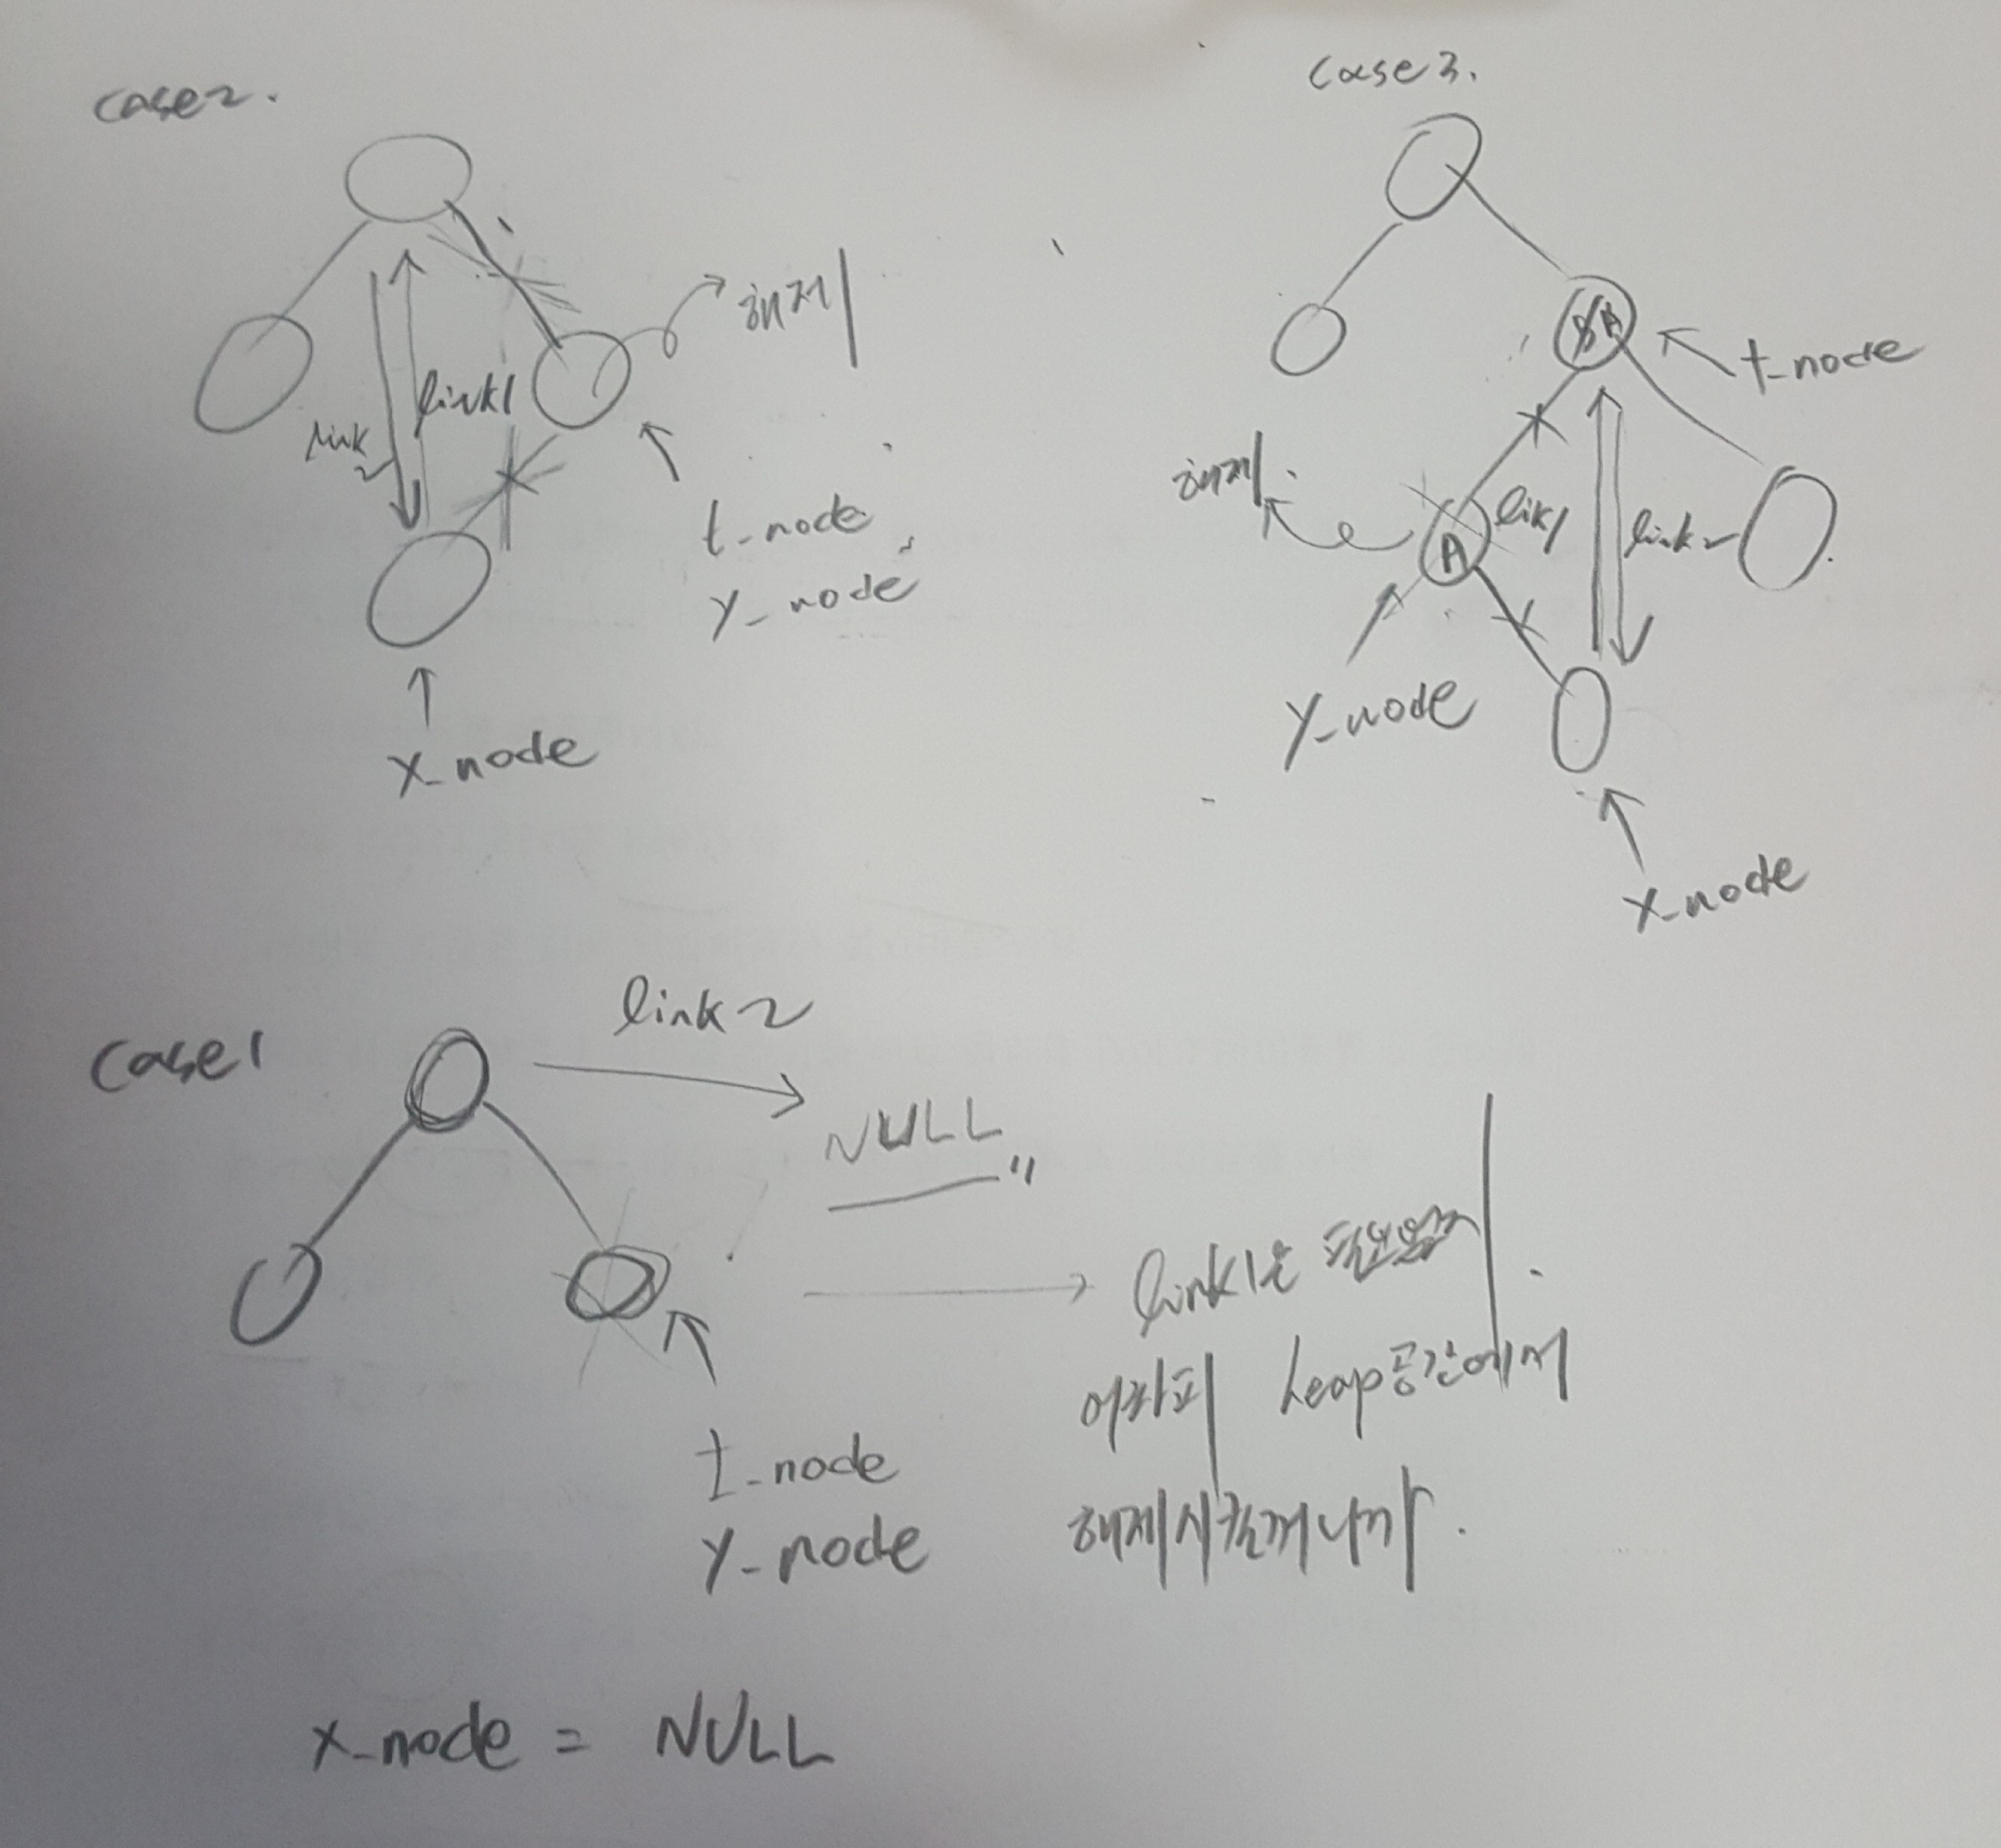 case2.
link1
link2
해제
t_node
y_node
x_node
case3.
A
t_node
해제.
A
link1
link2
y_node
x_node
case1
link2
NULL
t_node
y_node
link1은 필요없지.
어차피 heap공간에서
해제시킬꺼니까.
x_node = NULL